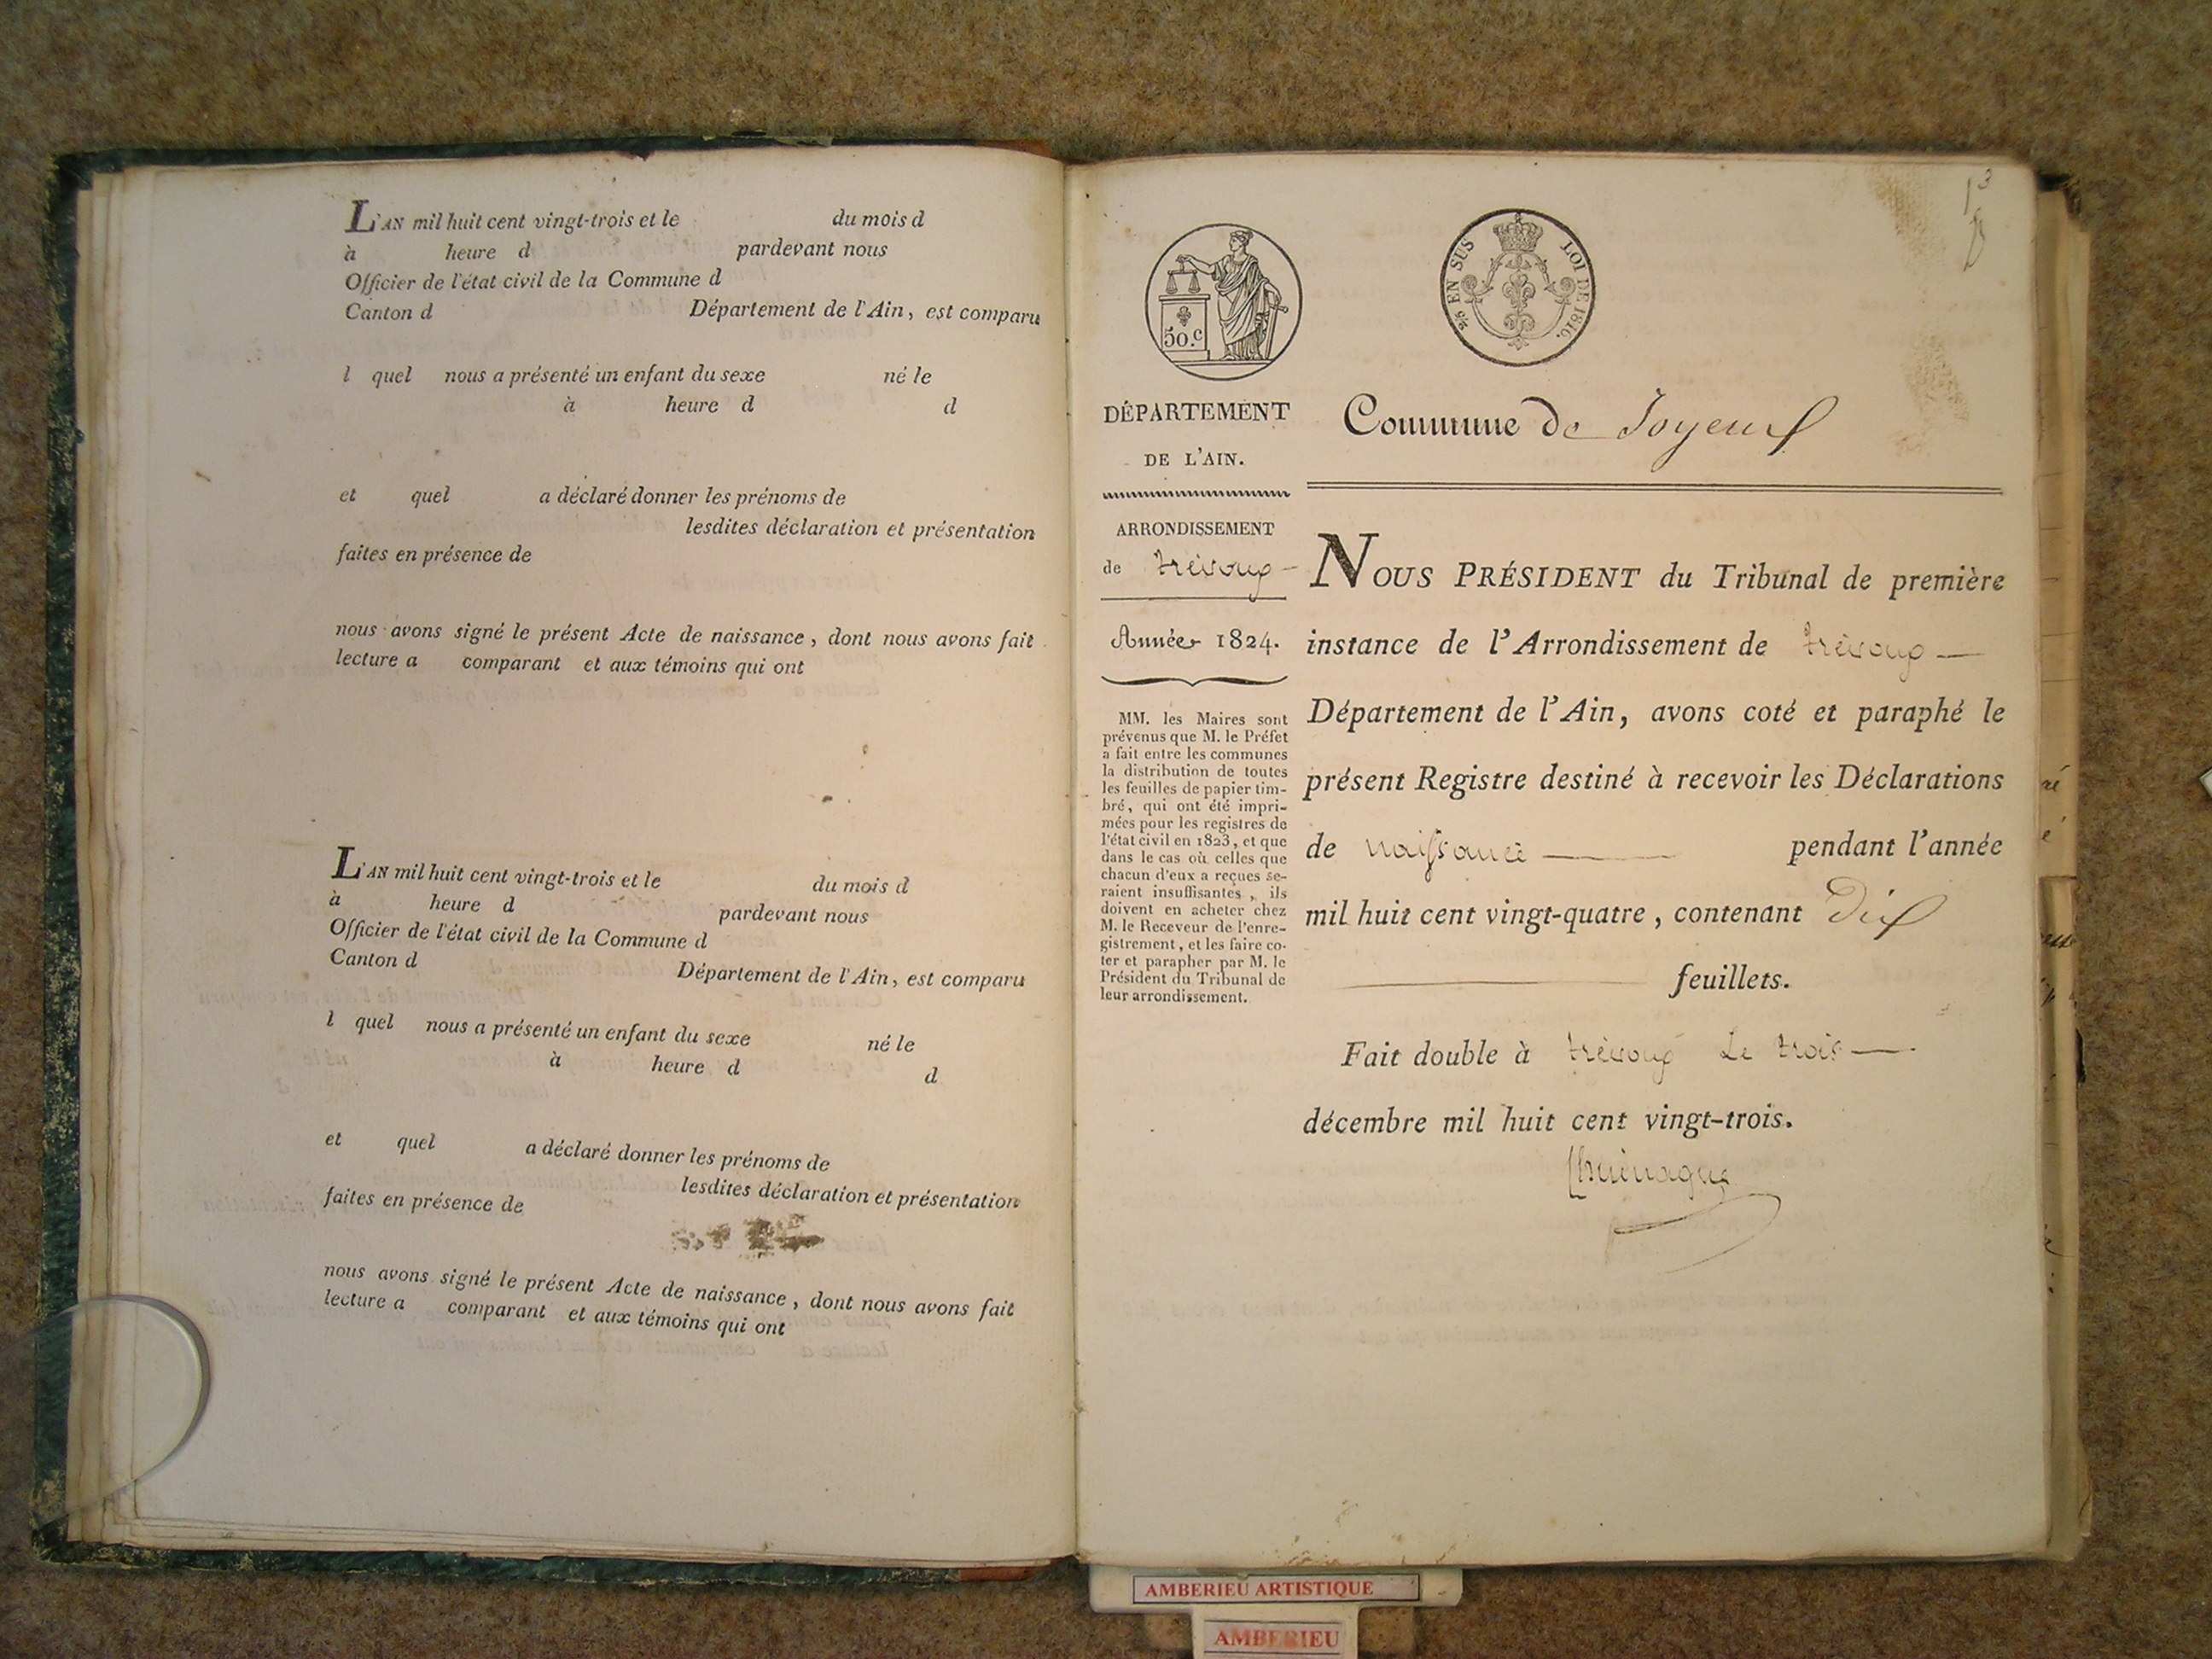 L'AN mil huit cent vingt-trois et le du mois d
à heure d pardevant nous
Officier de l'état civil de la Commune d
Canton d Département de l'Ain, est comparu
l quel nous a présenté un enfant du sexe né le
à heure d d
et quel a déclaré donner les prénoms de
lesdites déclaration et présentation
faites en présence de
nous avons signé le présent Acte de naissance, dont nous avons fait
lecture a comparant et aux témoins qui ont
L'AN mil huit cent vingt-trois et le du mois d
à heure d pardevant nous
Officier de l'état civil de la Commune d
Canton d Département de l'Ain, est comparu
l quel nous a présenté un enfant du sexe né le
à heure d d
et quel a déclaré donner les prénoms de
lesdites déclaration et présentation
faites en présence de
nous avons signé le présent Acte de naissance, dont nous avons fait
lecture a comparant et aux témoins qui ont
50.c
EN SUS LOI DE 1816.
DÉPARTEMENT
DE L'AIN.
ARRONDISSEMENT
de trévoux
Année 1824.
MM. les Maires sont
prévenus que M. le Préfet
a fait entre les communes
la distribution de toutes
les feuilles de papier tim-
bré, qui ont été impri-
mées pour les registres de
l'état civil en 1823, et que
dans le cas où celles que
chacun d'eux a reçues se-
raient insuffisantes, ils
doivent en acheter chez
M. le Receveur de l'enre-
gistrement, et les faire co-
ter et parapher par M. le
Président du Tribunal de
leur arrondissement.
Commune de Joyeux
NOUS PRÉSIDENT du Tribunal de première
instance de l'Arrondissement de trévoux
Département de l'Ain, avons coté et paraphé le
présent Registre destiné à recevoir les Déclarations
de naissance pendant l'année
mil huit cent vingt-quatre, contenant Dix
feuillets.
Fait double à trévoux Le trois
décembre mil huit cent vingt-trois.
AMBERIEU ARTISTIQUE
AMBERIEU